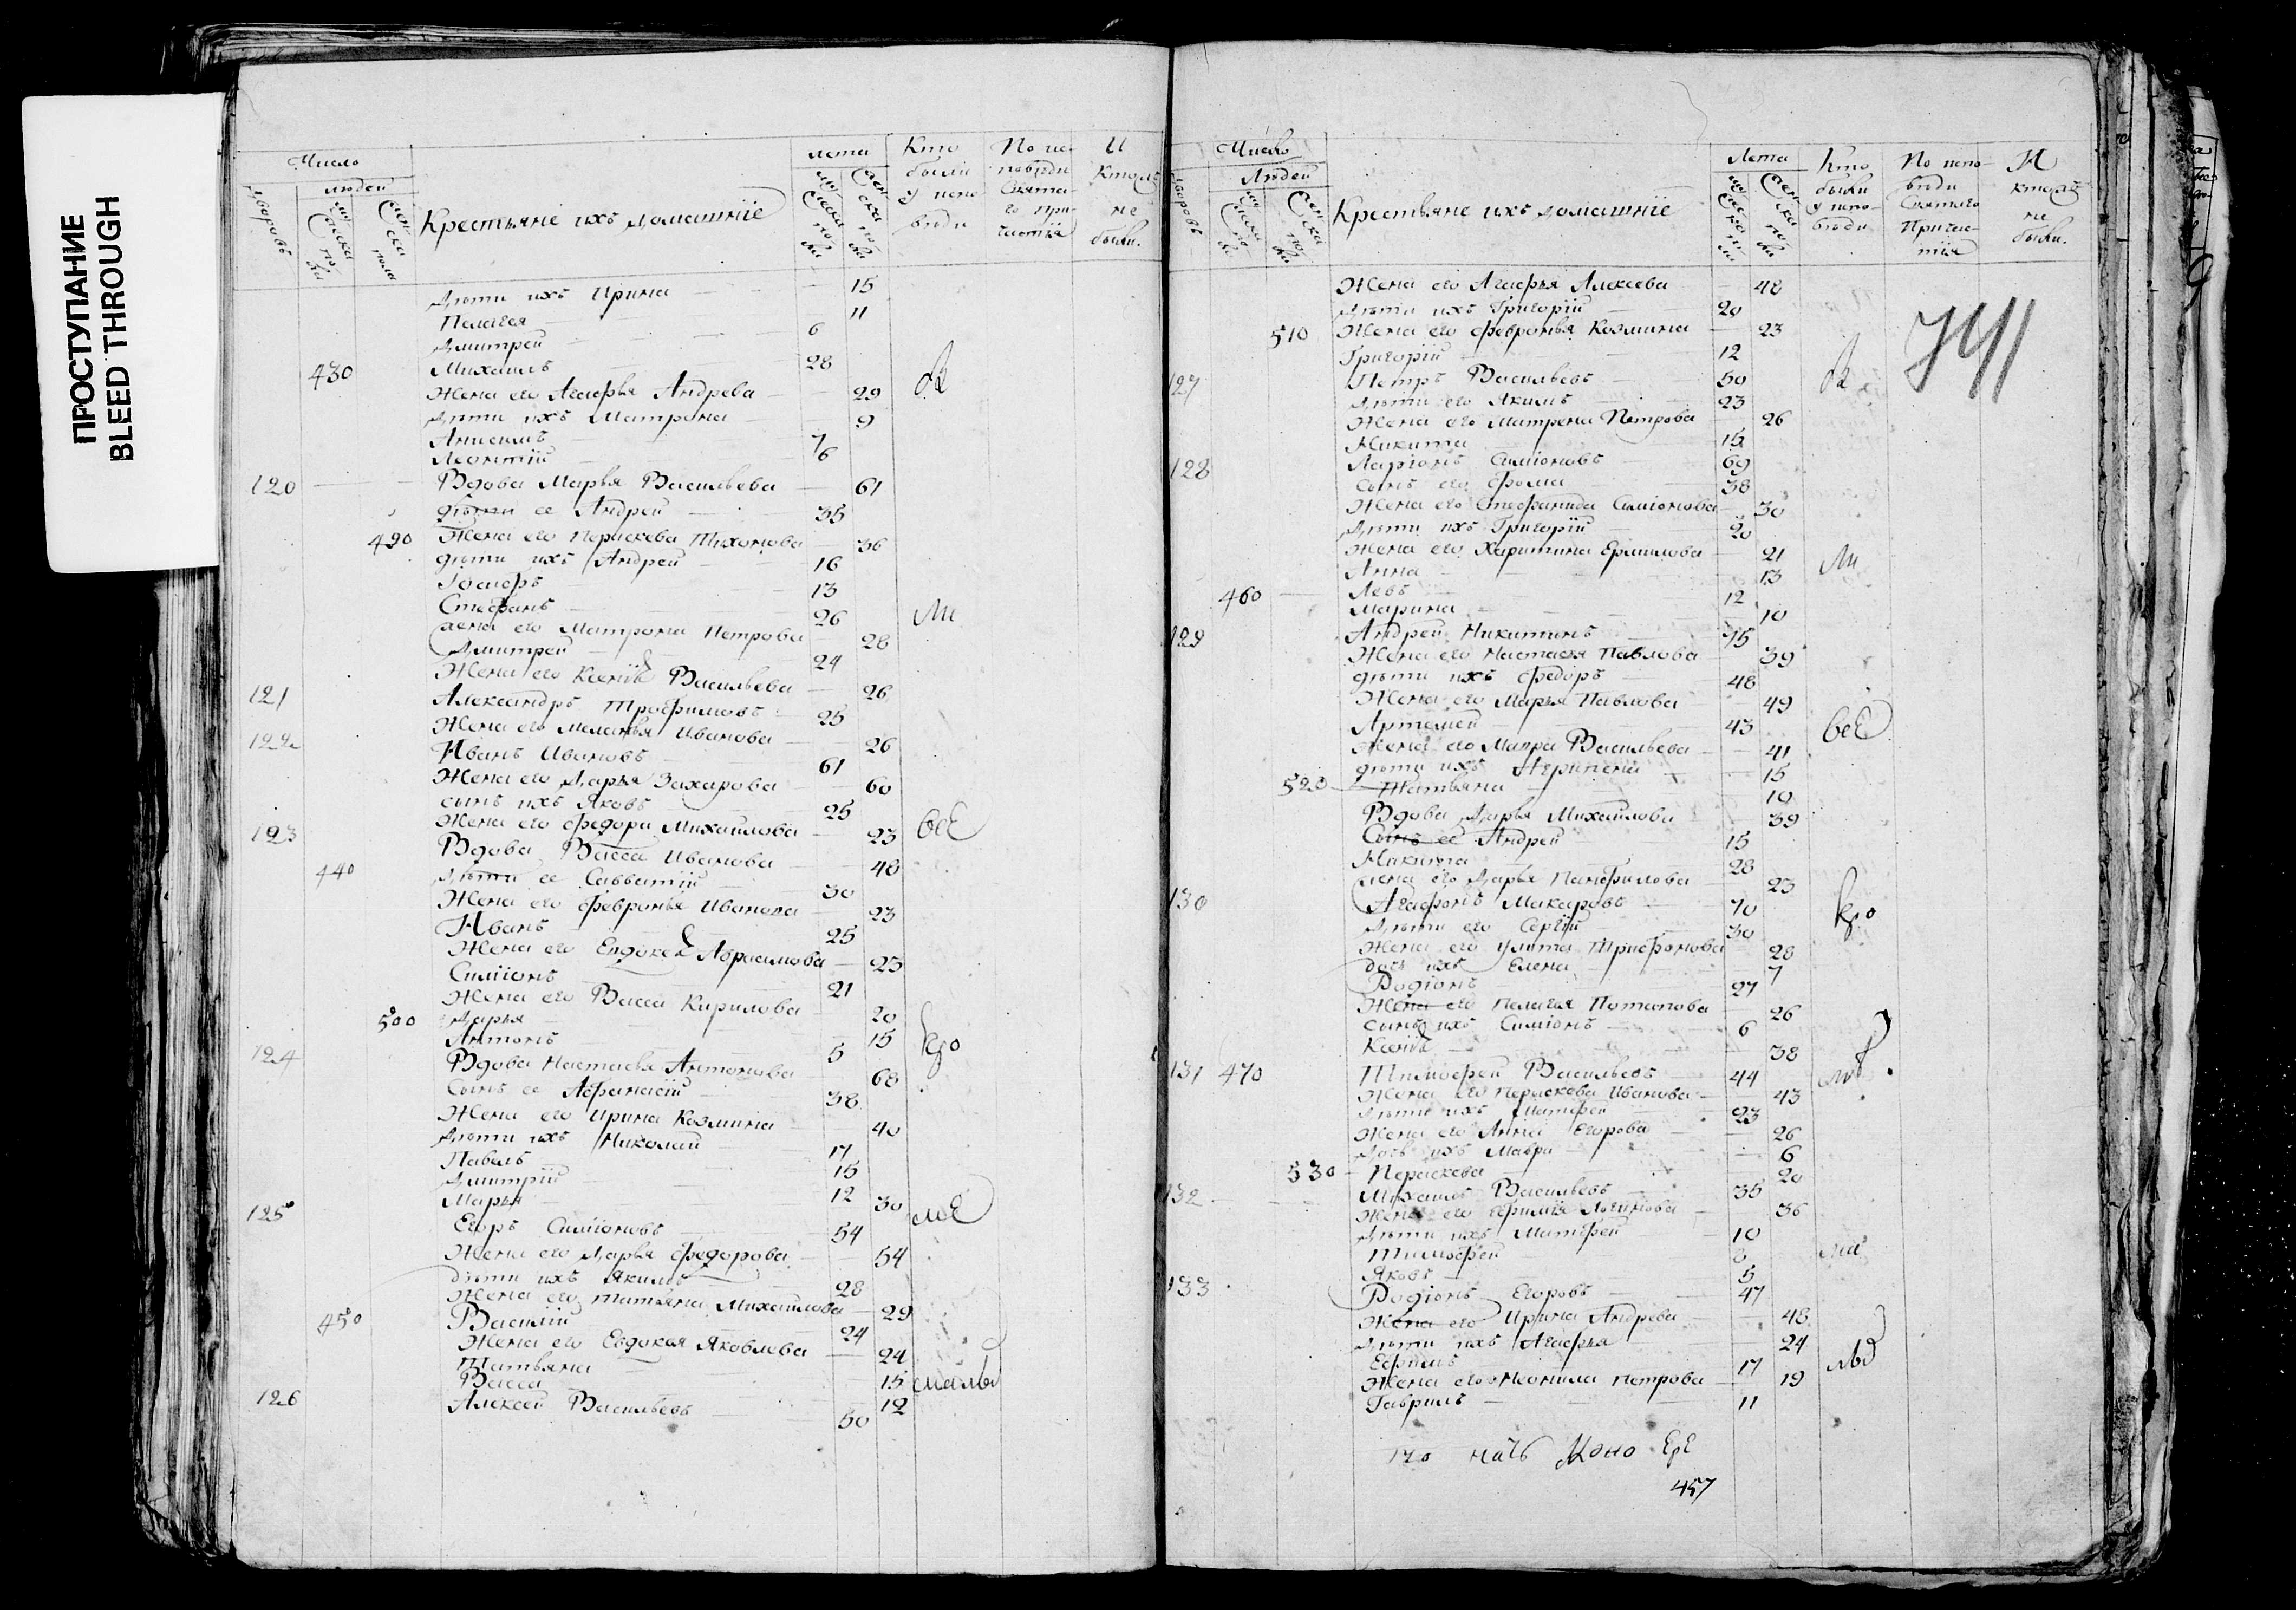 ПРОСТУПАНИЕ
BLEED THROUGH
Число
людей
дворовъ
мужеска пола
женска пола
Крестьяне ихъ домашнїе
лета
Кто были у исповѣди
По исповѣди Святаго причастїя
И кто не были.
дѣти ихъ Ирина 15
Пелагея 11
Дмитрей 6
430 Михаилъ 28
Жена его Агафья Андрева 29
дѣти ихъ Матрона 9
Анисимъ 7
Леонтїй 6
120 Вдова Марья Васильева 61
дѣти ее Андрей 35
490 Жена его Пераскева Тихонова 36
дѣти ихъ Андрей 16
Іосифъ 13
Стефанъ 26
жена его Матрона Петрова 28
Дмитрей 24
Жена его Ксенїя Васильева 26
121 Александръ Трофимовъ 25
Жена его Меланья Иванова 26
122 Иванъ Ивановъ 61
Жена его Дарья Захарова 60
сынъ ихъ Яковъ 25
Жена его Федора Михайлова 23
123 Вдова Васса Иванова 48
440 Дѣти ее Савватїй 30
Жена его Февронья Иванова 23
Иванъ 25
Жена его Евдокея Абрасимова 23
Симїонъ 21
Жена его Васса Кирилова 20
500 Дарья 15
Антонъ 5
124 Вдова Настасья Антонова 68
Сынъ ее Афанасїй 38
Жена его Ирина Козмина 40
Дѣти ихъ Николай 17
Павелъ 15
Дмитрїй 12
Марья 30
125 Егоръ Симїоновъ 54
Жена его Дарья Федорова 54
дѣти ихъ Якимъ 28
Жена его Татьяна Михайлова 29
450 Василїй 24
Жена его Евдокея Яковлева 24
Татьяна 15
Васса 12
126 Алексей Васильевъ 50
Число
Людей
дворовъ
мужеска пола
женска пола
Крестьяне ихъ домашнїе
Лета
Кто были у исповѣди
По исповѣди Святаго Причастїя
И кто не были.
Жена его Агафья Алексева 48
Дѣти ихъ Григорїй 20
510 Жена его Февронья Козмина 23
Григорїй 12
127 Петръ Васильевъ 50
Дѣти его Якимъ 23
Жена его Матрена Петрова 26
Никита 15
128 Ларїонъ Симїоновъ 69
сынъ его Фома 38
Жена его Стефанида Симїонова 30
Дѣти ихъ Григорїй 20
Жена его Харитина Ермилова 21
Анна 13
460 Левъ 12
Марина 10
129 Андрей Никитинъ 75
Жена его Настасея Павлова 39
дѣти ихъ Федоръ 48
Жена его Марья Павлова 49
Артемей 43
Жена его Мавра Васильева 41
дѣти ихъ Агрипена 15
520 Татьяна 10
Вдова Дарья Михайлова 39
Сынъ ее Андрей 15
Никита 28
жена его Дарья Панфилова 23
130 Агафонъ Макаровъ 70
Дѣти его Сергїй 30
Жена его Улита Трифонова 28
дочь ихъ Елена 7
Родїонъ 27
Жена его Пелагея Потапова 26
сынъ ихъ Симїонъ 6
Ксенїя 38
131 470 Тимофей Васильевъ 44
Жена его Пераскева Иванова 43
Дѣти ихъ Матфей 23
Жена его Анна Егорова 26
Дочь ихъ Мавра 6
530 Пераскева 20
132 Михаилъ Васильевъ 35
Жена его Ефимїя Логинова 36
Дѣти ихъ Матфей 10
Тимофей 8
Яковъ 5
133 Родїонъ Егоровъ 47
Жена его Ирина Андрева 48
Дѣти ихъ Агафья 24
Ефимъ 17
Жена его Неонила Петрова 19
Гаврилъ 11
457